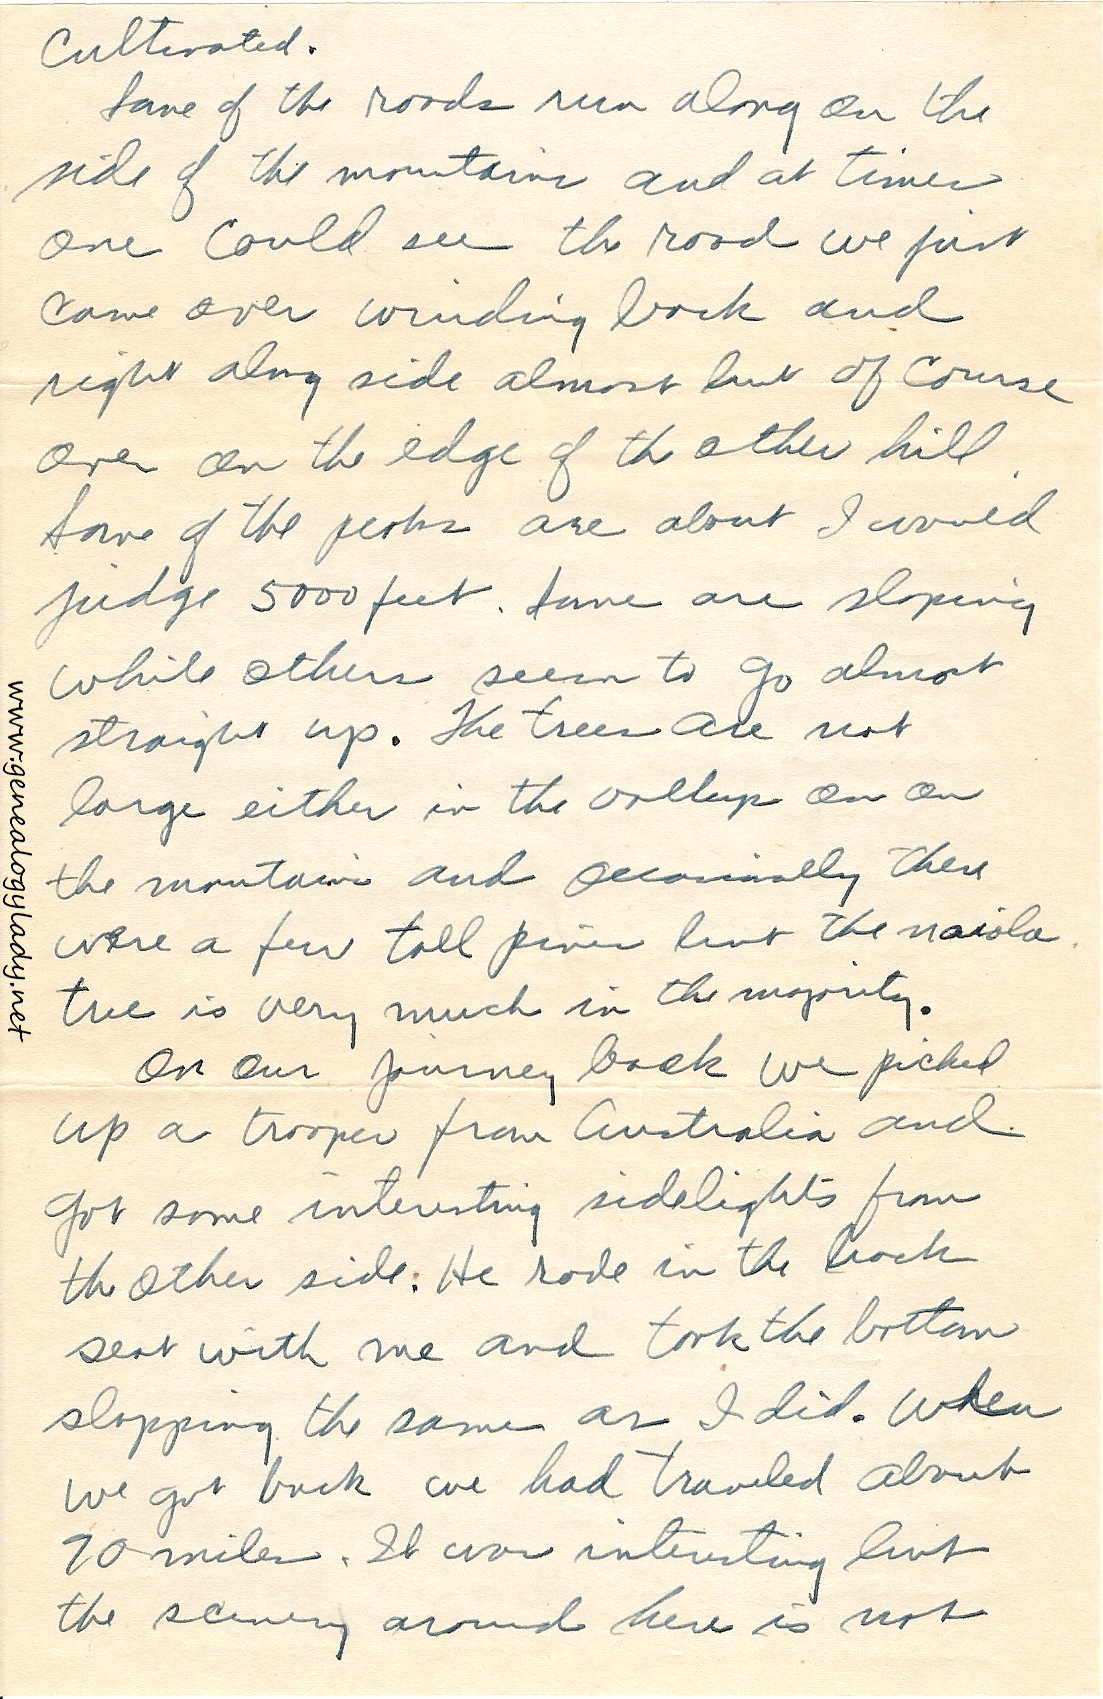 Cultivated.
Some of the roads run along on the
side of the mountains and at times
one could see the road we just
came over winding back and
right along side almost but of course
over on the edge of the other hill.
Some of the peaks are about I would
judge 5000 feet. Some are sloping
while others seem to go almost
straight up. The trees are not
large either in the valleys or on
the mountains and occasionally there
were a few tall pines but the naiola
tree is very much in the majority.
On our journey back we picked
up a trooper from Australia and
got some interesting sidelights from
the other side. He rode in the back
seat with me and took the bottom
slapping the same as I did. When
we got back we had traveled about
70 miles. It was interesting but
the scenery around here is not
www.genealogylady.net